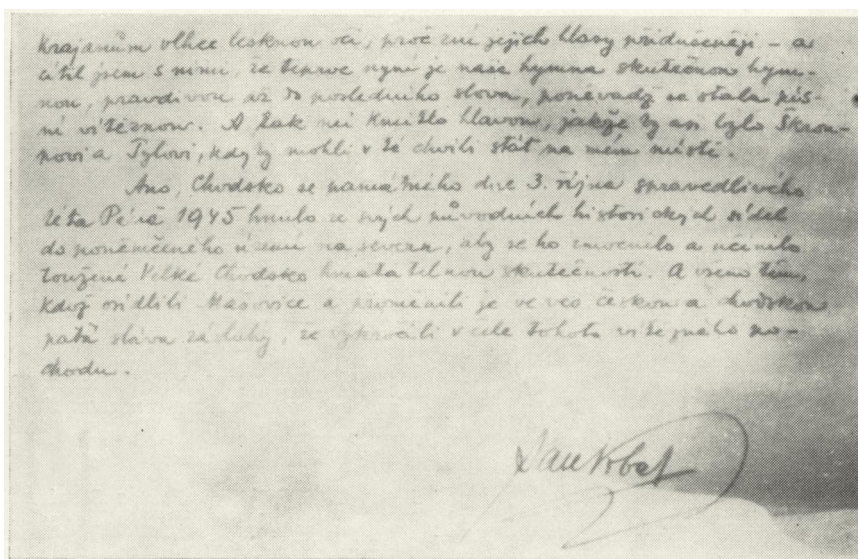 Krajanům vlhce lesknou oči, proč zní jejich hlasy přidušeněji – a
cítil jsem s nimi, že teprve nyní je naše hymna skutečnou hym-
nou, pravdivou až do posledního slova, poněvadž se stala pís-
ní vítěznou. A pak mi hlavou, jakže by asi bylo Škrou-
povi a Tylovi, kdyby mohli v té chvíli stát na mém místě.
Ano, Chodsko se památného dne 3. října spravedlivého
léta Páně 1945 hnulo ze svých původních historických sídel
do poněmčeného území na severu, aby se ho zmocnilo a učinilo
toužené Velké Chodsko hmatatelnou skutečností. A všem těm,
kdož osídlili Mašovice a proměnili je ve ves českou a chodskou
patří sláva zásluhy, že vykročili v čele tohoto vítězného po-
chodu.
Jan Vrba